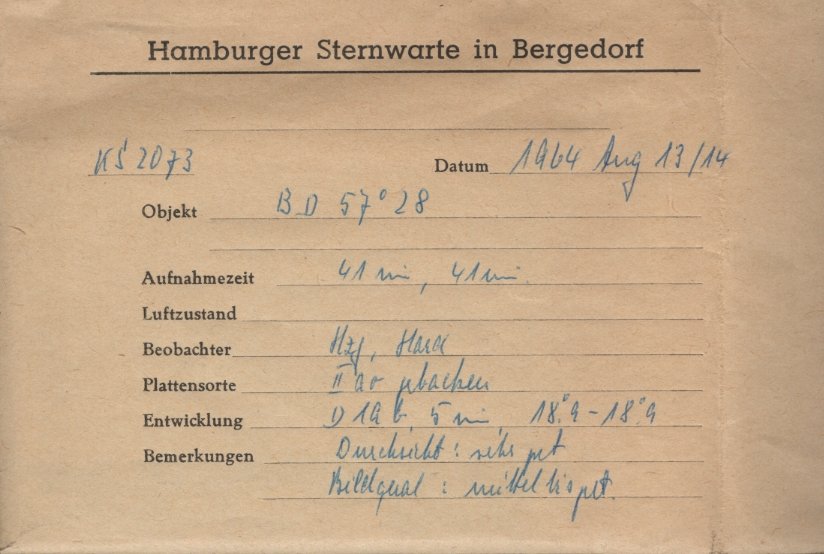 Hamburger Sternwarte in Bergedorf
KS 2073 Datum 1964 Aug 13/14
Objekt BD 57°28
Aufnahmezeit 41 min, 41 min.
Luftzustand
Beobachter Hzg,
Plattensorte II a o gebacken
Entwicklung D 19 b, 5 min, 18.°9 - 18.°9
Bemerkungen Durchsicht: sehr gut
Bildqual: mittel bis gut.